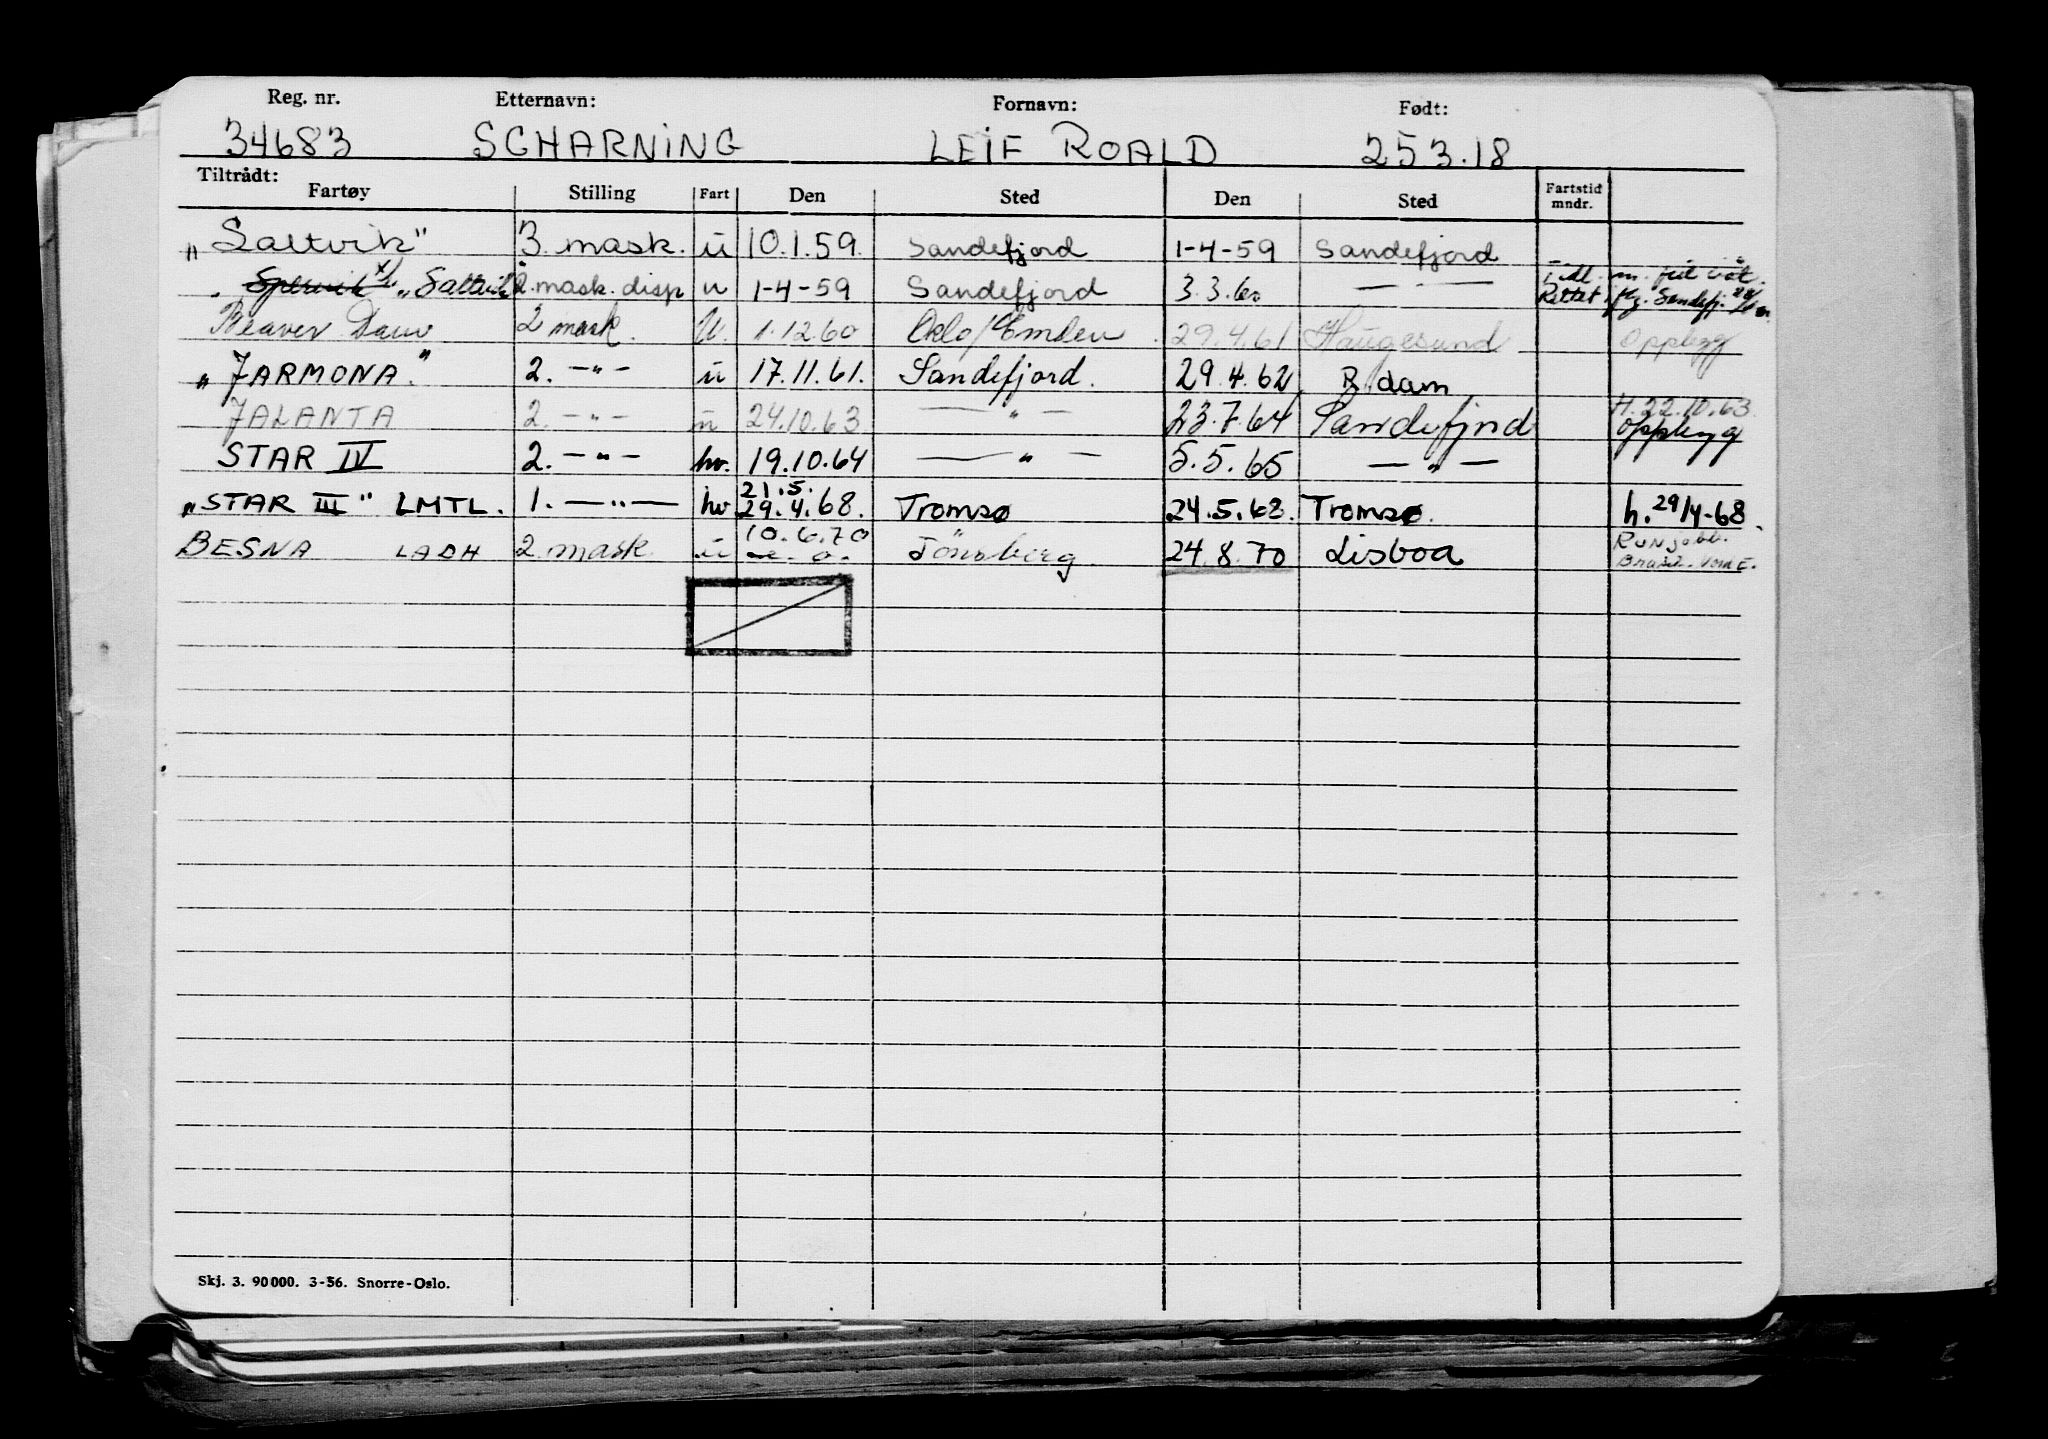 Reg. nr. Etternavn: Fornavn: Født:
34683 SCHARNING LEIF ROALD 253.18
Tiltrådt:
Fartøy Stilling Fart Den Sted Den Sted Fartstid mndr.
"Saltvik" 3. mask. u 10.1.59. Sandefjord 1-4-59 Sandefjord
"Saltvik" 2. mask. disp u 1-4-59 Sandefjord 3.3.60 — " — Rettet
Beaver Dam 2 mask. U. 1.12.60 Oslo/Emden 29.4.61 Haugesund Opplegg
"JARMONA." 2. —"— u 17.11.61. Sandefjord. 29.4.62 R.dam
JALANTA 2. —"— u 24.10.63 — " — 23.7.64 Sandefjord H. 22.10.63 opplegg
STAR IV 2. —"— hv. 19.10.64 — " — 5.5.65 — " —
"STAR III" LMTL. 1. —"— hv 21.5. 29.4.68. Tromsø 24.5.68. Tromsø. h. 29/4-68.
BESNA LADH 2 mask u 10.6.70 Tönsberg. 24.8.70 Lisboa
Skj. 3. 90000. 3-56. Snorre-Oslo.